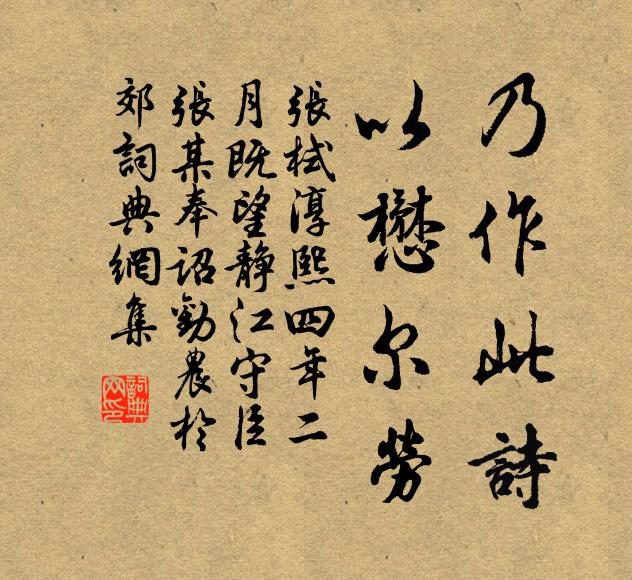 乃作此詩
以懋尔勞
張栻淳熙四年二
月既望靜江守臣
張某奉詔勸農於
郊詞典網集
詞典网印